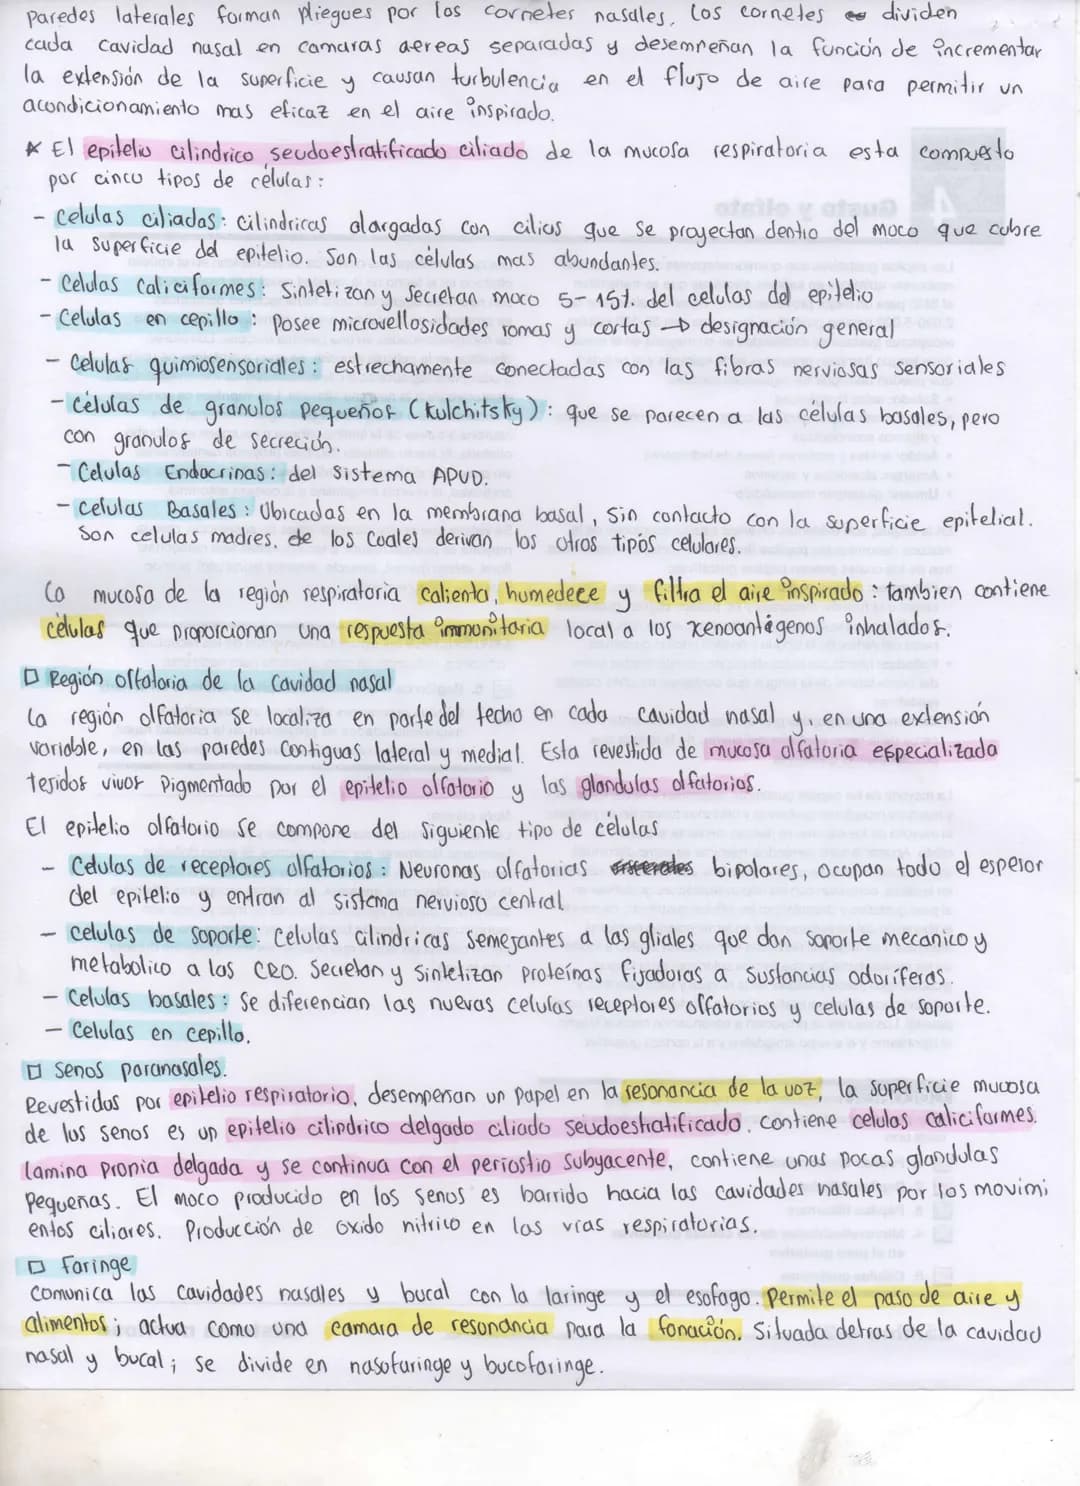 paredes laterales forman pliegues por los cornetes nasales. Los cornetes dividen
cada cavidad nasal en camaras aereas separadas y desempeñan la función de incrementar
la extensión de la superficie y causan turbulencia en el flujo de aire para permitir un
acondicionamiento mas eficaz en el aire inspirado.
* El epitelio cilindrico seudoestratificado ciliado de la mucosa respiratoria esta compuesto
por cinco tipos de células:
- Celulas ciliadas: cilindricas alargadas con cilios que se proyectan dentro del moco que cubre
la superficie del epitelio. Son las células mas abundantes.
- Celulas Caliciformes: Sintetizan y Secretan moco 5-15%. del celulas del epitelio
- Celulas en cepillo: Posee microvellosidades romas y cortas → designación general
- Celulas quimiosensoriales: estrechamente conectadas con las fibras nerviosas sensoriales
- Células de granulos pequeños (kulchitsky): que se parecen a las células basales, pero
con granulos de secreción.
- Celulas Endocrinas: del sistema APUD.
- Celulas Basales: Ubicadas en la membrana basal, Sin contacto con la superficie epitelial.
Son celulas madres, de los Cuales derivan los otros tipos celulares.
La mucosa de la región respiratoria calienta, humedece y filtra el aire inspirado: tambien contiene
células que proporcionan una respuesta immonitaria local a los xenoantígenos inhalados.
□ Región olfatoria de la cavidad nasal
La región olfatoria se localiza en parte del techo en cada cavidad nasal y, en una extensión
variable, en las paredes contiguas lateral y medial. Esta revestida de mucosa olfatoria especializada
tejidos vivos Pigmentado por el epitelio olfatorio y las glandulas olfatorias.
El epitelio olfatorio se compone del siguiente tipo de células
- Celulas de receptores olfatorios: Neuronas olfatorias bipolares, ocupan todo el espesor
del epitelio y entran al sistema nervioso central
- celulas de soporte: Celulas cilindricas semejantes a las gliales que dan soporte mecanico y
metabolico a las CRO. Secretan y Sintetizan proteínas fijadoras a sustancias odoríferas.
- Celulas basales: Se diferencian las nuevas celulas receptores olfatorios y celulas de soporte.
- Celulas en cepillo.
□ Senos paranasales.
Revestidos por epitelio respiratorio, desempeñan un papel en la resonancia de la voz, la superficie mucosa
de los senos es un epitelio cilindrico delgado ciliado seudoestratificado. contiene celulas caliciformes.
Lamina propia delgada y se continua con el periostio subyacente, contiene unas pocas glandulas
Pequeñas. El moco producido en los senos es barrido hacia las cavidades nasales por los movimi
entos ciliares. Producción de oxido nitrico en las vias respiratorias.
□ Faringe
Comunica las cavidades nasales y bucal con la laringe y el esofago. Permite el paso de aire y
alimentos; actua como una camara de resonancia para la fonación. Situada detras de la cavidad
nasal y bucal; se divide en nasofaringe y bucofaringe.